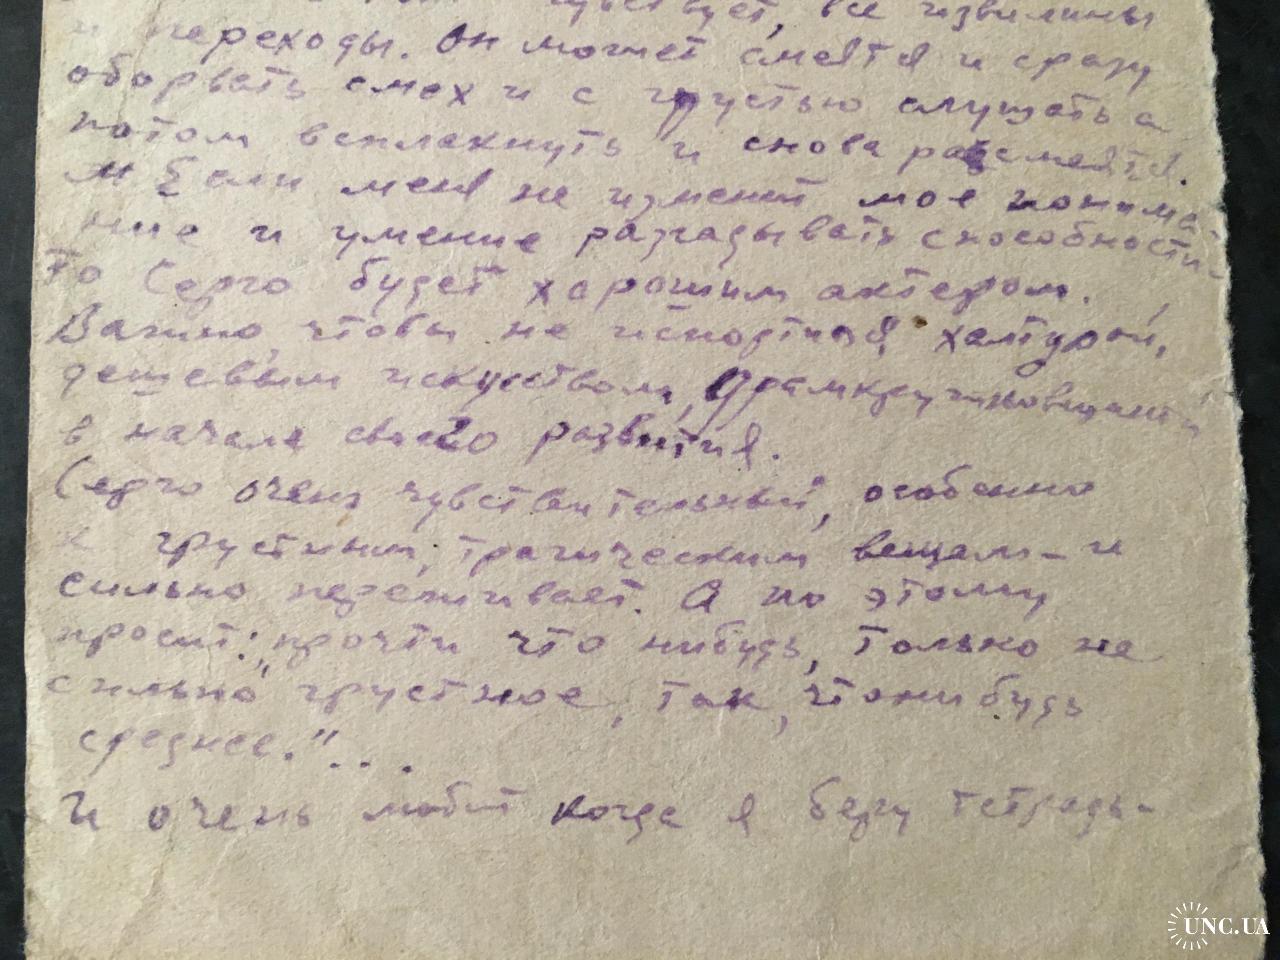 чувствует, все извилины
и переходы. Он может смеятся и сразу
оборвать смех и с грустью слушать а
потом всплакнуть и снова разсмеятся.
Если меня не изменит мое понима-
ние и умение разгадывать способности-
то Серго будет хорошим актером.
Важно, чтобы не испортился, халтурой,
дешевым искуством,
в начале своего развития.
Серго очень чувствительный, особенно
к грустным, трагическим вещам - и
сильно переживает. А по этому
просит: "прочти что нибудь, только не
сильно грустное, так, что нибудь
среднее."...
И очень любит когда я беру тетрадь-
UNC.UA